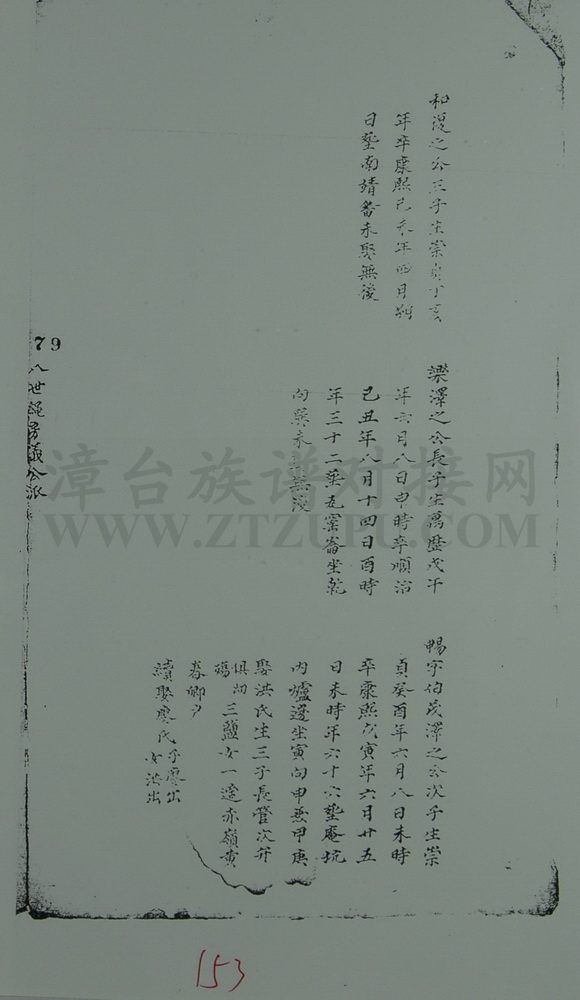 和 之公三子生崇貞丁亥
年卒康熙己未年四月初
日塟南靖 未娶無後
樂澤之公長子生萬歷戊午
年六月八日申時卒順治
己丑年八月十四日酉時
年三十二葬瓦窰崙坐乾
向巽未 無後
暢字伯茂澤之公次子生崇
貞癸酉年六月八日未時
卒康熙戊寅年六月廿五
日未時年六十六塟庵坑
內爐邊坐寅向申兼甲庚
娶洪氏生三子長管次弁
俱幼 三鹽女一適赤嶺黄
春卿
續娶廖氏子廖出
女洪出
79
八世 房 公派
漳台族谱对接网
WWW.ZTZUPU.COM
153